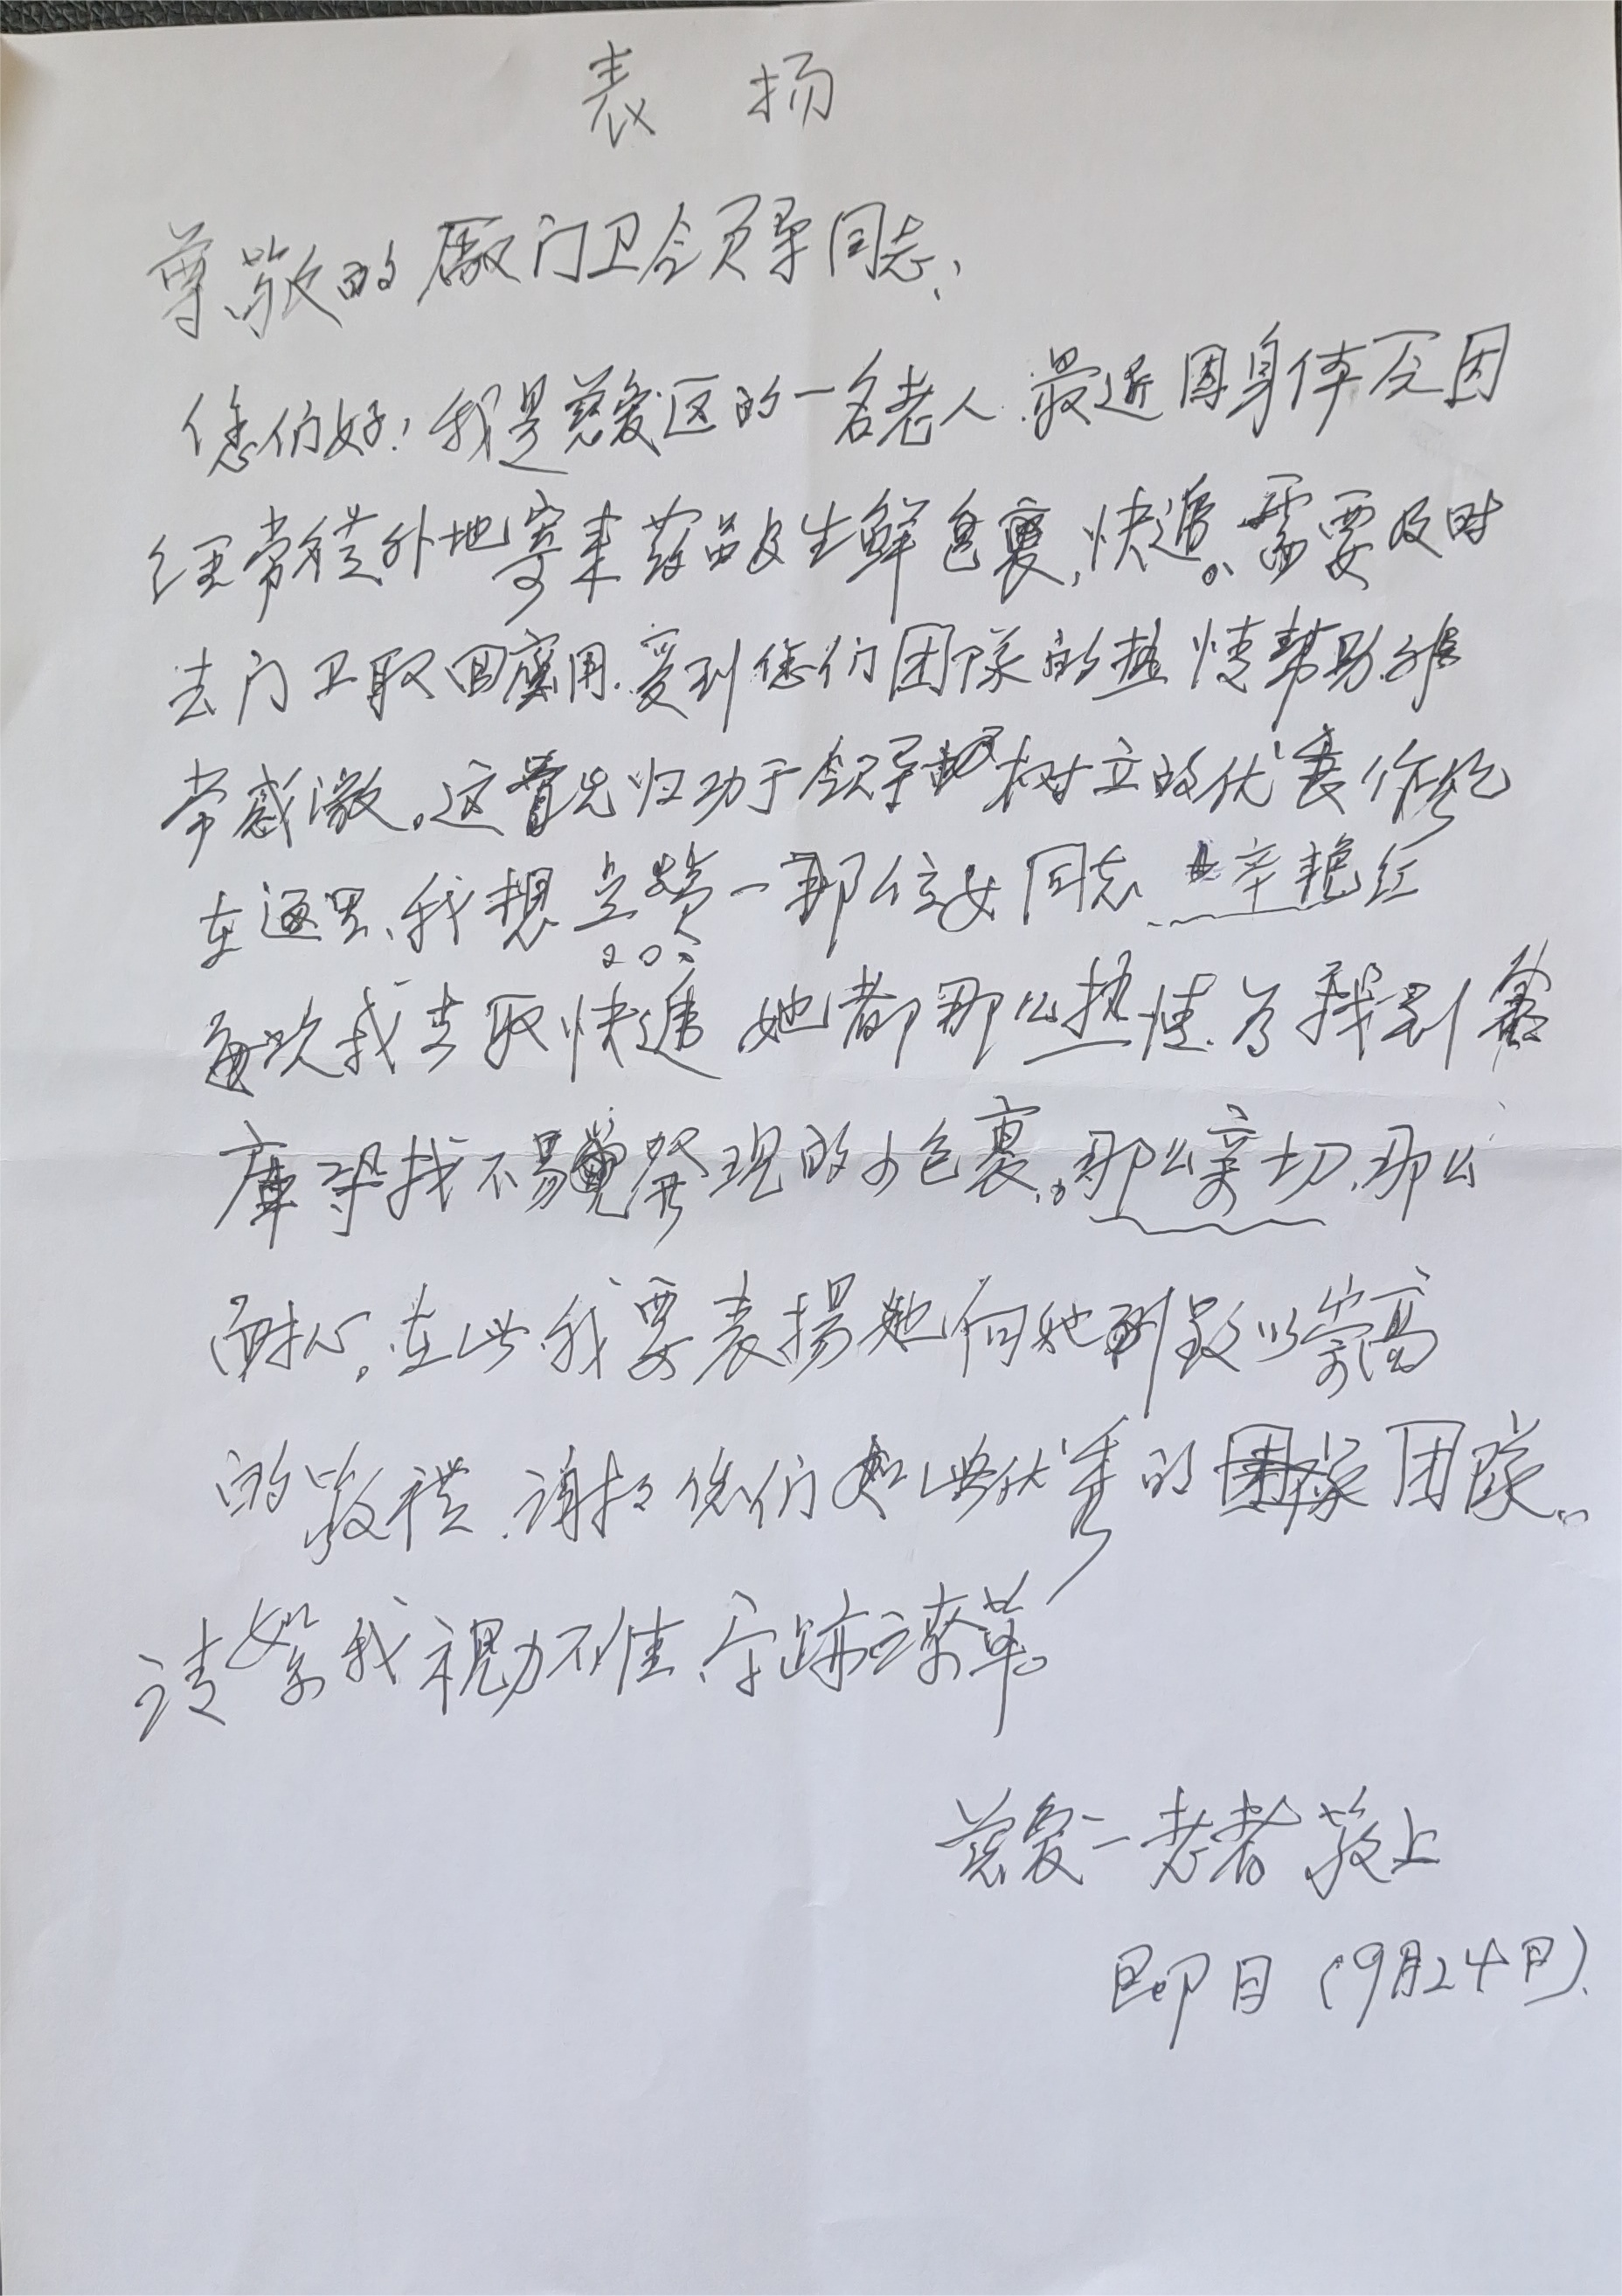 表 扬
尊敬的厰门卫领导同志、
您们好！我是慈爱区的一名老人.最近因身体原因
经常從外地寄来药品及生鲜包裹,快递。需要及时
去门卫取回應用.受到您们团隊的热情帮助.非
常感激。这首先归功于领导树立的优良作风
在这里、我想点赞一那位女同志 辛艳红
每次我去取快递 她都那么热情.为我到
庫寻找不易發现的小包裹。那么亲切.那么
耐心。在此我要表揚她向她致以崇高
的敬禮.謝謝您们如此优秀的团隊。
请恕我視力不佳、字跡潦草。
慈爱一老者敬上
即日（9月24日）.